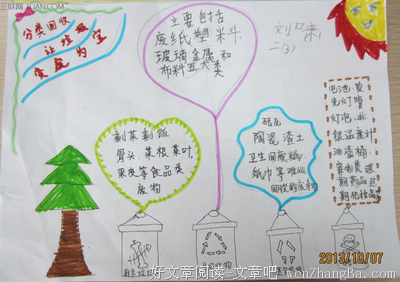 分类回收
让垃圾
变废为宝
主要包括
废纸塑料
玻璃金属和
布料五大类
二(3)
剩菜剩饭
骨头菜根菜叶
果皮等食品类
废物
砖瓦
陶瓷渣土
卫生间废纸
纸巾等难以
回收的废弃物
灯泡水
银温度计
油漆桶
期药品过
期化妆品
可回收物
2013/10/07
好文章阅读-文章吧-WenZhangBa.com